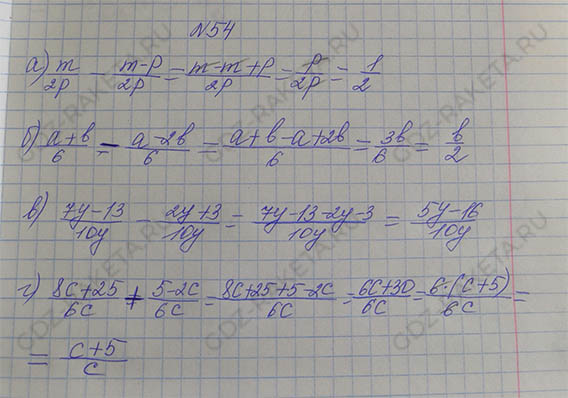 N54
а) m/2p - m-p/2p = m-m+p/2p = p/2p = 1/2
б) a+b/6 - a-2b/6 = a+b-a+2b/6 = 3b/6 = b/2
в) 7y-13/10y - 2y+3/10y = 7y-13-2y-3/10y = 5y-16/10y
г) 8c+25/6c + 5-2c/6c = 8c+25+5-2c/6c = 6c+30/6c = 6·(c+5)/6c =
= c+5/c
GDZ-RAKETA.RU